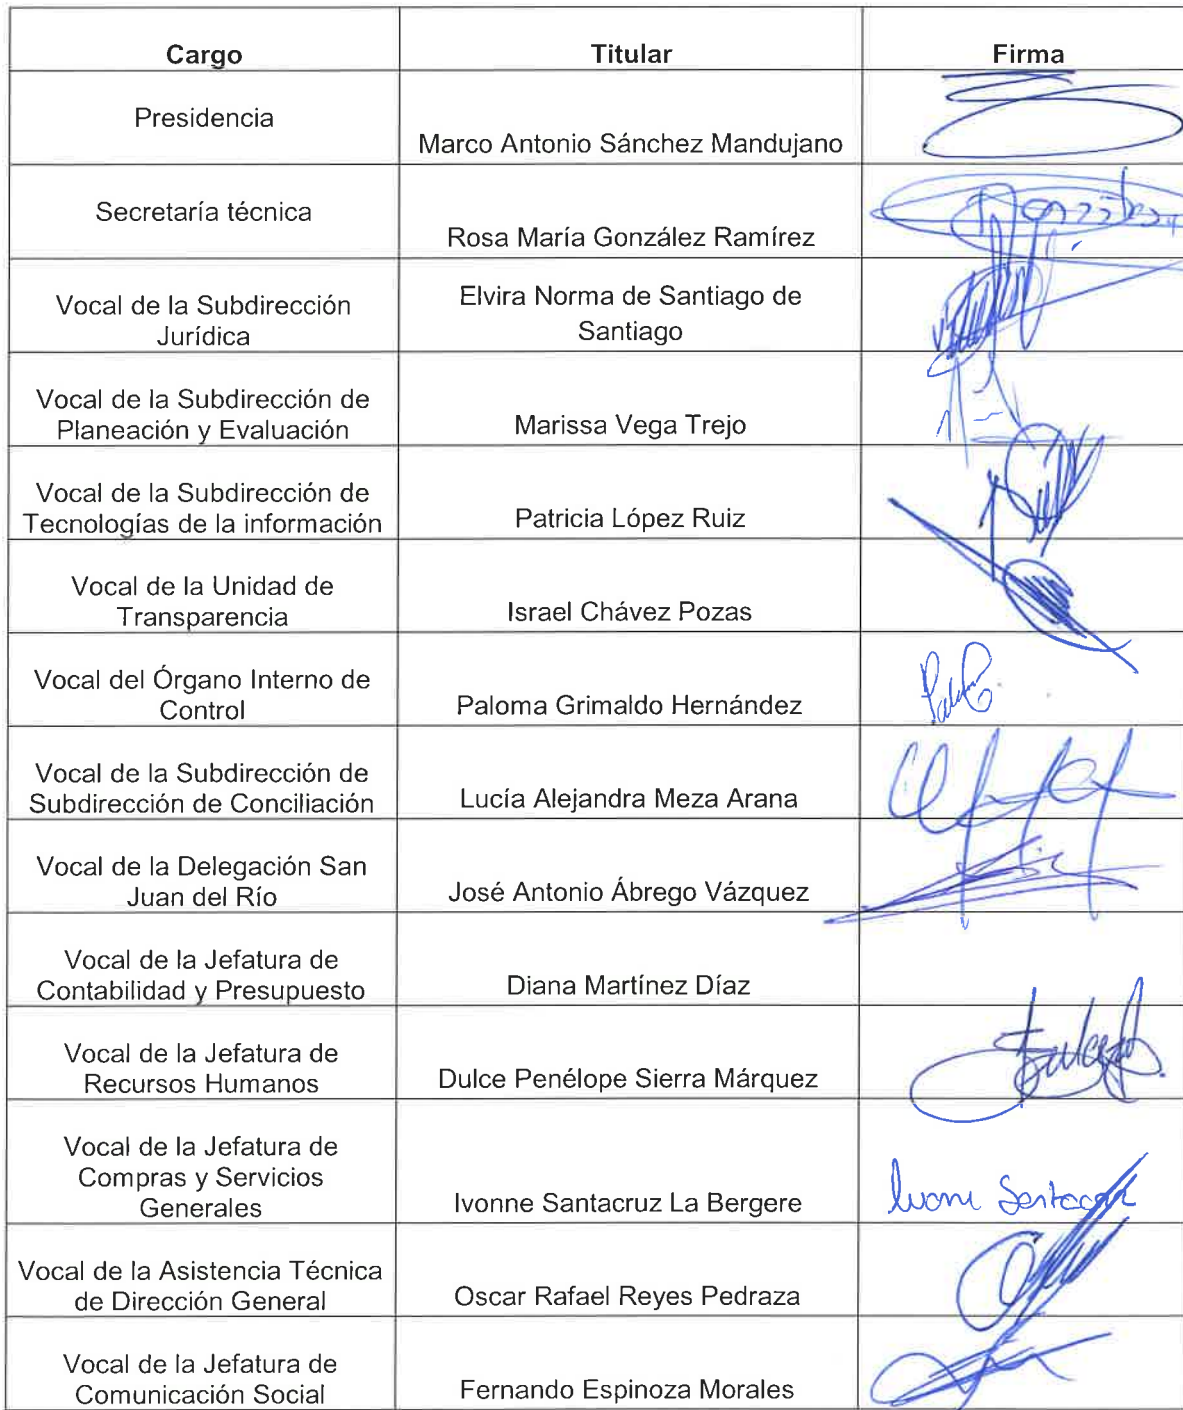 Cargo Titular Firma
Presidencia
Marco Antonio Sánchez Mandujano
Secretaría técnica
Rosa María González Ramírez
Vocal de la Subdirección
Jurídica
Elvira Norma de Santiago de
Santiago
Vocal de la Subdirección de
Planeación y Evaluación
Marissa Vega Trejo
Vocal de la Subdirección de
Tecnologías de la información
Patricia López Ruiz
Vocal de la Unidad de
Transparencia
Israel Chávez Pozas
Vocal del Órgano Interno de
Control
Paloma Grimaldo Hernández
Vocal de la Subdirección de
Subdirección de Conciliación
Lucía Alejandra Meza Arana
Vocal de la Delegación San
Juan del Río
José Antonio Ábrego Vázquez
Vocal de la Jefatura de
Contabilidad y Presupuesto
Diana Martínez Díaz
Vocal de la Jefatura de
Recursos Humanos
Dulce Penélope Sierra Márquez
Vocal de la Jefatura de
Compras y Servicios
Generales
Ivonne Santacruz La Bergere
Vocal de la Asistencia Técnica
de Dirección General
Oscar Rafael Reyes Pedraza
Vocal de la Jefatura de
Comunicación Social
Fernando Espinoza Morales